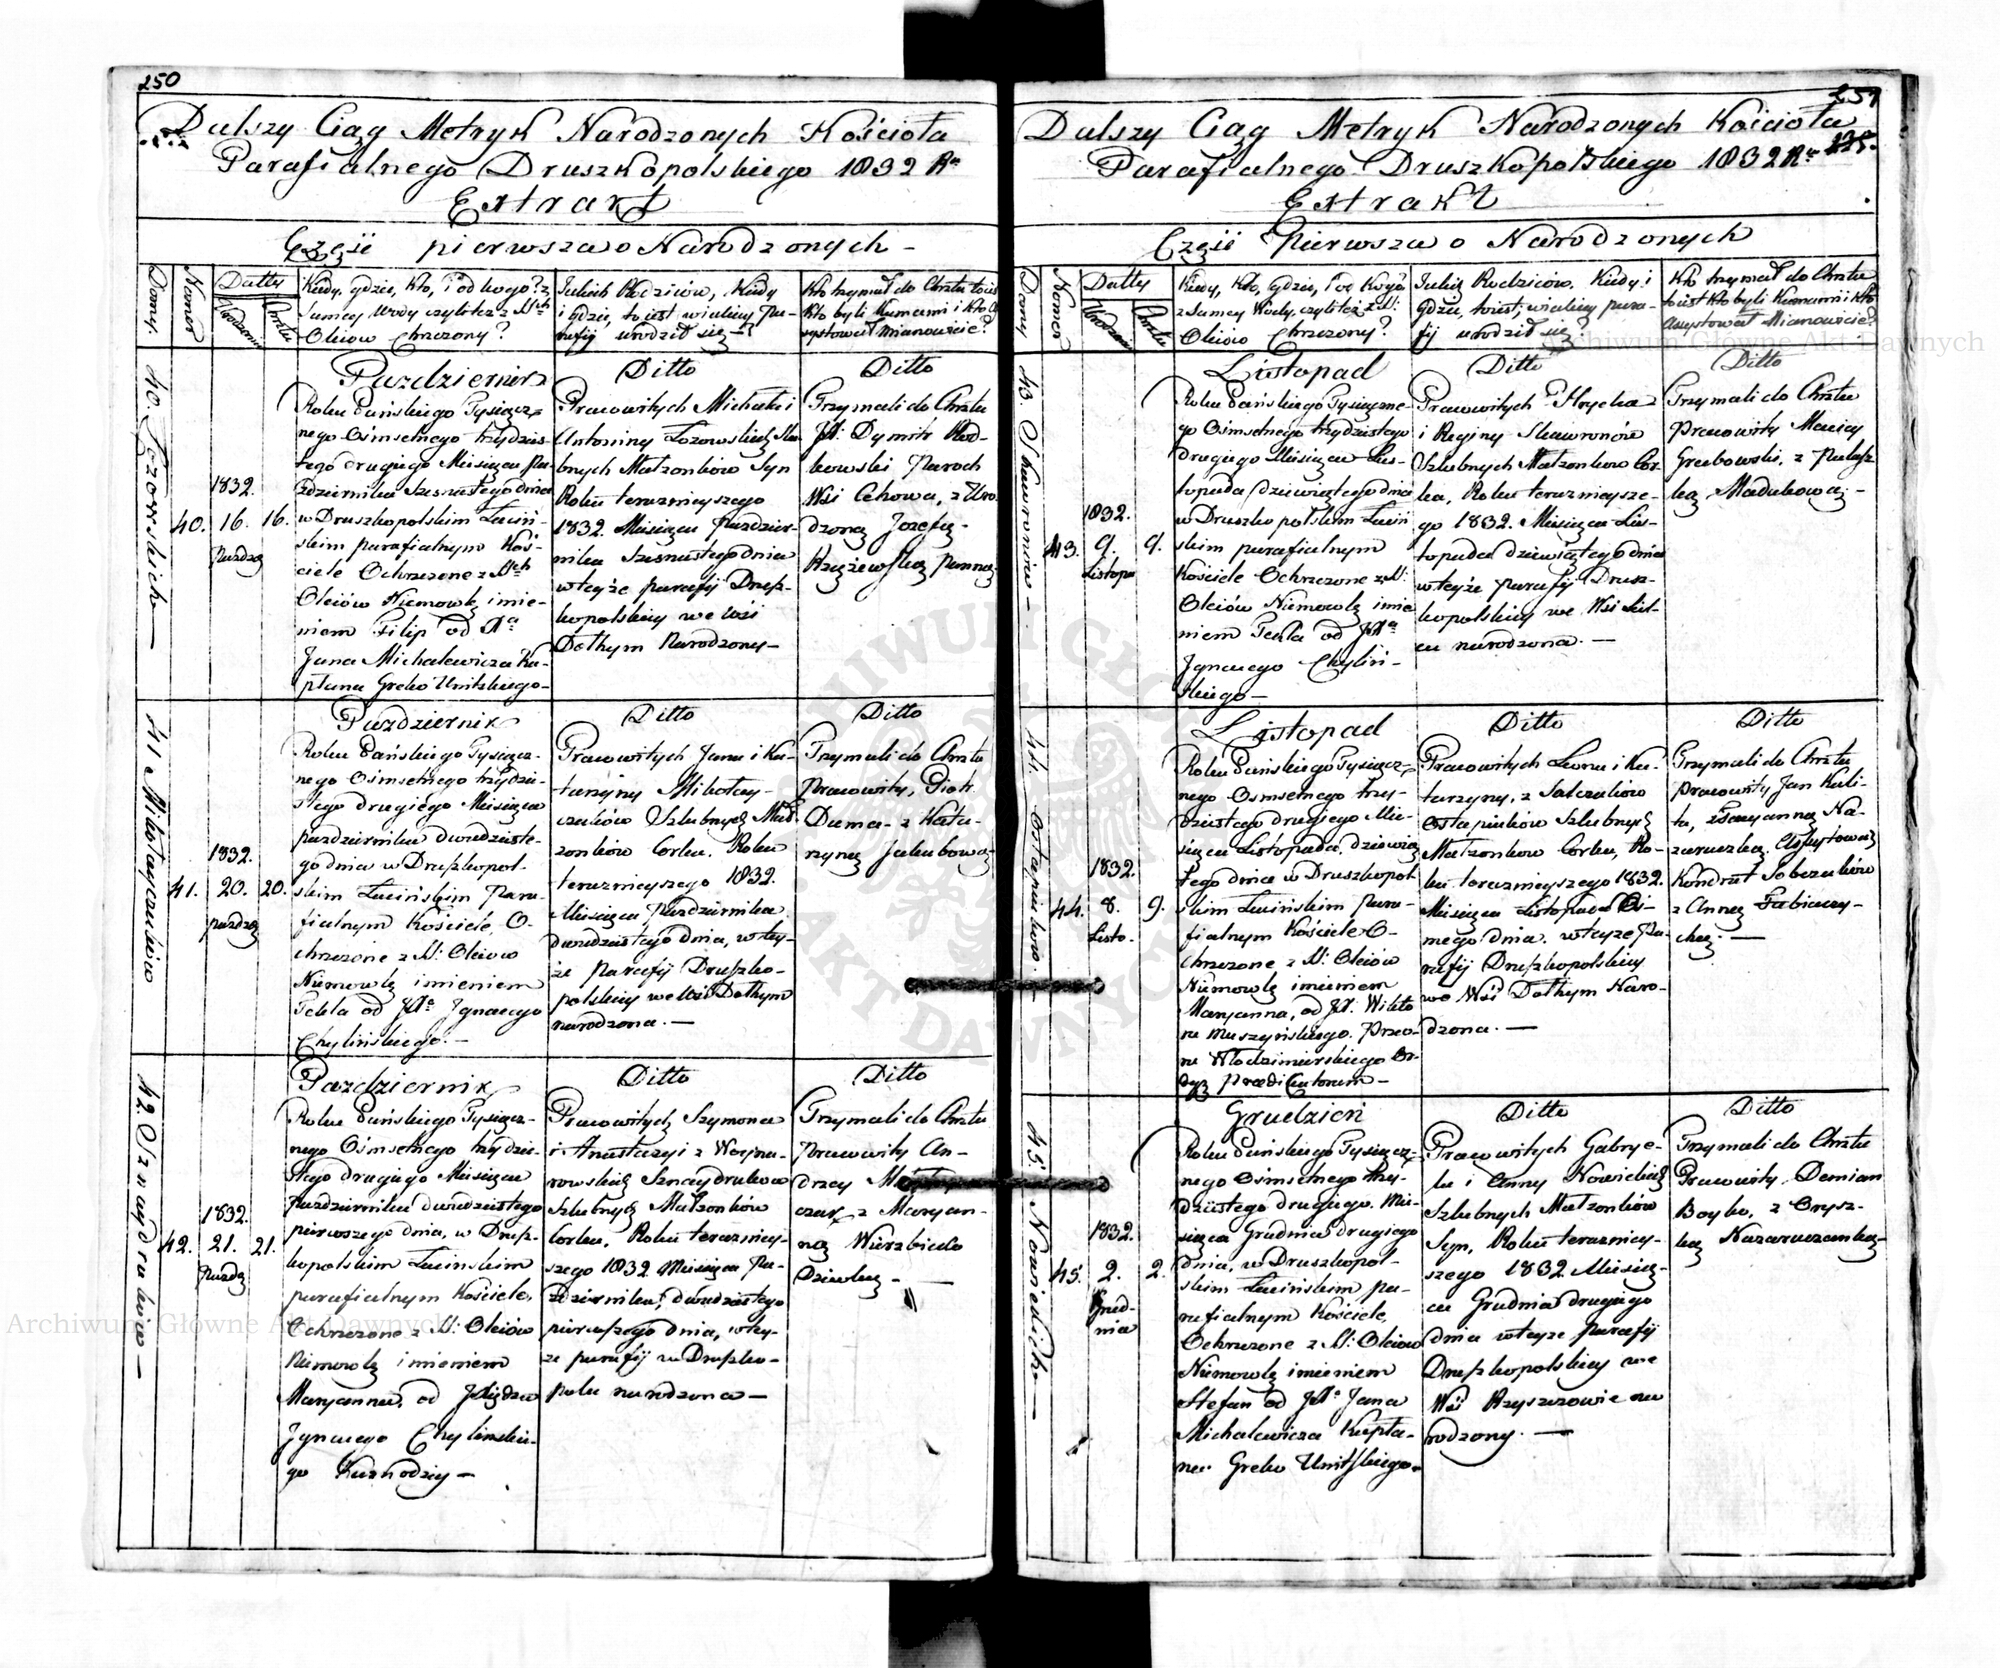 250
Dalszy Ciąg Metryk Narodzonych Kościoła
Parafialnego Druszkopolskiego 1832 Ru
Extrakt
Częśc pierwsza o Narodzonych -
Domy.
Numer
Datty
Urodzenia
Chrztu
Kiedy, gdzie, kto, i od kogo? z
samey Wody czyli też z S.tch
Oleiow Chrzczony?
Jakich Rodziców, Kiedy
i gdzie, to iest w iakiey Pa-
rafij urodził się?
Kto trzymał do Chrztu to iest
kto byli Kumami i kto
asystował mianowicie?
40. Łozowskich —
40.
1832.
16.
Pazdz
16.
Pazdziernik
Roku Pańskiego Tysiącz-
nego Ośmsetnego trzydzies-
tego drugiego Miesiąca Pa-
zdziernika Szesnastego dnia
w Druszkopolskim Łaciń-
skim parafialnym Koś-
ciele Ochrzczone z S.tch
Oleiów Niemowlę imie-
niem Filip od
Jana Michalewicza Ka-
płana Greko Unitskiego -
Ditto
Pracowitych Michała i
Antoniny Łozowskich Slu-
bnych Małżonków Syn
Roku teraznieyszego
1832. Miesiąca Pazdzier-
nika Szesnastego dnia
w teyże parafij Drusz-
kopolskiey we Wsi
Dołhym Narodzony -
Ditto
Trzymali do Chrztu
JX: Dymitr Rod-
kowski Paroch
Wsi Cehowa, z Uro-
dzoną Jozefą
Krzyżewską Panną
41 Mikołayczuków
41.
1832.
20.
pazdz
20.
Pazdziernik
Roku Pańskiego Tysiącz-
nego Ośmsetnego trzydzie-
stego drugiego Miesiąca
pazdziernika dwudzieste-
go dnia w Druszkopol-
skim Łacińskim Para-
fialnym Kościele, O-
chrzczone z S: Oleiow
Niemowlę imieniem
Tekla od JXa Ignacego
Chylińskiego. -
Ditto
Pracowitych Jana i Ka-
tarzyny Mikołay-
czuków Szlubnych Mał-
żonków Corka. Roku
teraznieyszego 1832.
Miesiąca Pazdziernika
dwudziestego dnia, w tey-
że Parafij Druszko-
polskiey we Wsi Dołhym
narodzona. —
Ditto
Trzymali do Chrztu
Pracowity, Piotr
Duma - z Kata-
rzyną Jakubową
42. Sznaydruków —
42.
1832.
21.
Pazdz
21.
Pazdziernik
Roku Pańskiego Tysiącz-
nego Ośmsetnego trzydzie-
stego drugiego Miesiąca
Pazdziernika dwudziestego
pierwszego dnia, w Drusz-
kopolskim Łacińskim
parafialnym Kościele,
Ochrzczone z S: Oleiów
Niemowlę imieniem
Maryanna, od JXiędza
Ignacego Chylińskie-
go Kaznodziey —
Ditto
Pracowitych Szymona
i Anastazyi z Woyna-
rowskich Sznaydruków
Szlubnych Małżonków
Corka, Roku teraźniey-
szego 1832 Miesiąca Pa-
zdziernika, dwudziestego
pierwszego dnia, w tey-
że parafij w Druszko-
polu narodzona —
Ditto
Trzymali do Chrztu
Pracowity An-
drzey
czuk z Maryan-
ną Wierzbicką
Dziewką - —
251
225.
Dalszy Ciąg Metryk Narodzonych Kościoła
Parafialnego Druszkopolskiego 1832 Ru
Extrakt
Częśc Pierwsza o Narodzonych
Domy
Nomer
Datty
Urodzenia
Chrztu
Kiedy, Kto, Gdzie, i od Kogo
z Samey Wody, czyli też z S:
Oleiów Chrzczony?
Jakich Rodziców, Kiedy i
gdzie, to iest, w iakiey para-
fij urodził się?
Kto trzymał do Chrztu
to iest kto byli Kumami i kto
Assystował Mianowicie?
43. Skawronów —
43.
1832.
9.
Listopa
9.
Listopad
Roku Pańskiego Tysiączne-
go Ośmsetnego trzydziestego
drugiego Miesiąca Lis-
topada dziewiątego dnia
w Druszkopolskim Łaciń
skim parafialnym
Kościele Ochrzczone z S:
Oleiów Niemowlę imie
niem Tekla od JXa
Ignacego Chyliń-
skiego —
Ditto
Pracowitych Hrycka
i Reginy Skawronów
Szlubnych Małżonkow Cor-
ka, Roku teraznieysze-
go 1832. Miesiąca Lis-
topada dziewiątego dnia
w teyże parafij Drusz-
kopolskiey we Wsi
narodzona. —
Ditto
Trzymali do Chrztu
Pracowity Maciey
Grabowski, z Pałasz-
ką Madukową -
44. Ostapiuków. —
44.
1832.
8.
Listo.
9.
Listopad
Roku Pańskiego Tysiącz-
nego Ośmsetnego trzy-
dziestego drugiego Mie-
siąca Listopada, dziewią
tego dnia w Druszkopol
skim Łacińskim para-
fialnym Kościele O-
chrzczone z S: Oleiów
Niemowlę imieniem
Maryanna, od JX: Wikto
ra Muszyńskiego. Przeo-
ra Włodzimierskiego Or-
dyz Praedicatorum —
Ditto
Pracowitych Leona i Ka-
tarzyny, z
Ostapiuków Szlubnych
Małżonkow Corka, Ro-
ku teraznieyszego 1832.
Miesiąca Listopada Oś-
mego dnia. w teyże Pa-
rafij Druszkopolskiey
we Wsi Dołhym Naro-
dzona. —
Ditto
Trzymali do Chrztu
Pracowity Jan Kali-
ta, z Maryanną Na-
zaruczką. Assystował
Kondrat Sobczuków
z Anną Fabiczy-
chą. —
45. Nowickich —
45.
1832.
2.
Grud-
nia
2.
Grudzień
Roku Pańskiego Tysiącz-
nego Ośmsetnego trzy-
dziestego drugiego, Mie-
siąca Grudnia drugiego
dnia, w Druszkopol-
skim Łacińskim pa-
rafialnym Kościele,
Ochrzczone z S: Oleiów
Niemowlę imieniem
Stefan od JXa Jana
Michalewicza Kapła-
na Greko Unitskiego.
Ditto
Pracowitych Gabrye-
la i Anny Nowickich
Szlubnych Małżonków
Syn, Roku teraźniey-
szego 1832 Miesią-
ca Grudnia drugiego
dnia w teyże parafij
Druszkopolskiey we
Wsi Krzyszzowie na
rodzony. —
Ditto
Trzymali do Chrztu
Pracowity Demian
Boyko, z Orysz-
ką Nazaruczanką
Archiwum Główne Akt Dawnych
Archiwum Główne Akt Dawnych